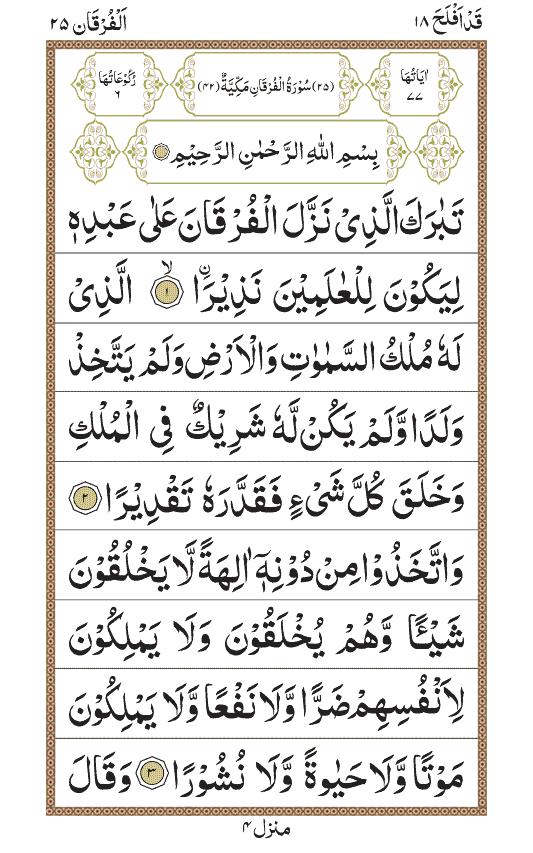 قَدْ اَفْلَحَ ١٨
اَلْفُرْقَان ٢٥
اٰيَاتُهَا ٧٧
(٢٥) سُوْرَةُ الْفُرْقَانِ مَكِّيَّةٌ (٤٢)
رُكُوْعَاتُهَا ٦
بِسْمِ اللّٰهِ الرَّحْمٰنِ الرَّحِيْمِ
تَبٰرَكَ الَّذِىْ نَزَّلَ الْفُرْقَانَ عَلٰى عَبْدِهٖ
لِيَكُوْنَ لِلْعٰلَمِيْنَ نَذِيْرَاۙ ۟ ﴿١﴾ اۨلَّذِىْ
لَهٗ مُلْكُ السَّمٰوٰتِ وَالْاَرْضِ وَلَمْ يَتَّخِذْ
وَلَدًا وَّلَمْ يَكُنْ لَّهٗ شَرِيْكٌ فِى الْمُلْكِ
وَخَلَقَ كُلَّ شَىْءٍ فَقَدَّرَهٗ تَقْدِيْرًا ﴿٢﴾
وَاتَّخَذُوْا مِنْ دُوْنِهٖۤ اٰلِهَةً لَّا يَخْلُقُوْنَ
شَيْـًٔا وَّهُمْ يُخْلَقُوْنَ وَلَا يَمْلِكُوْنَ
لِاَنْفُسِهِمْ ضَرًّا وَّلَا نَفْعًا وَّلَا يَمْلِكُوْنَ
مَوْتًا وَّلَا حَيٰوةً وَّلَا نُشُوْرًا ﴿٣﴾ وَقَالَ
منزل ٤